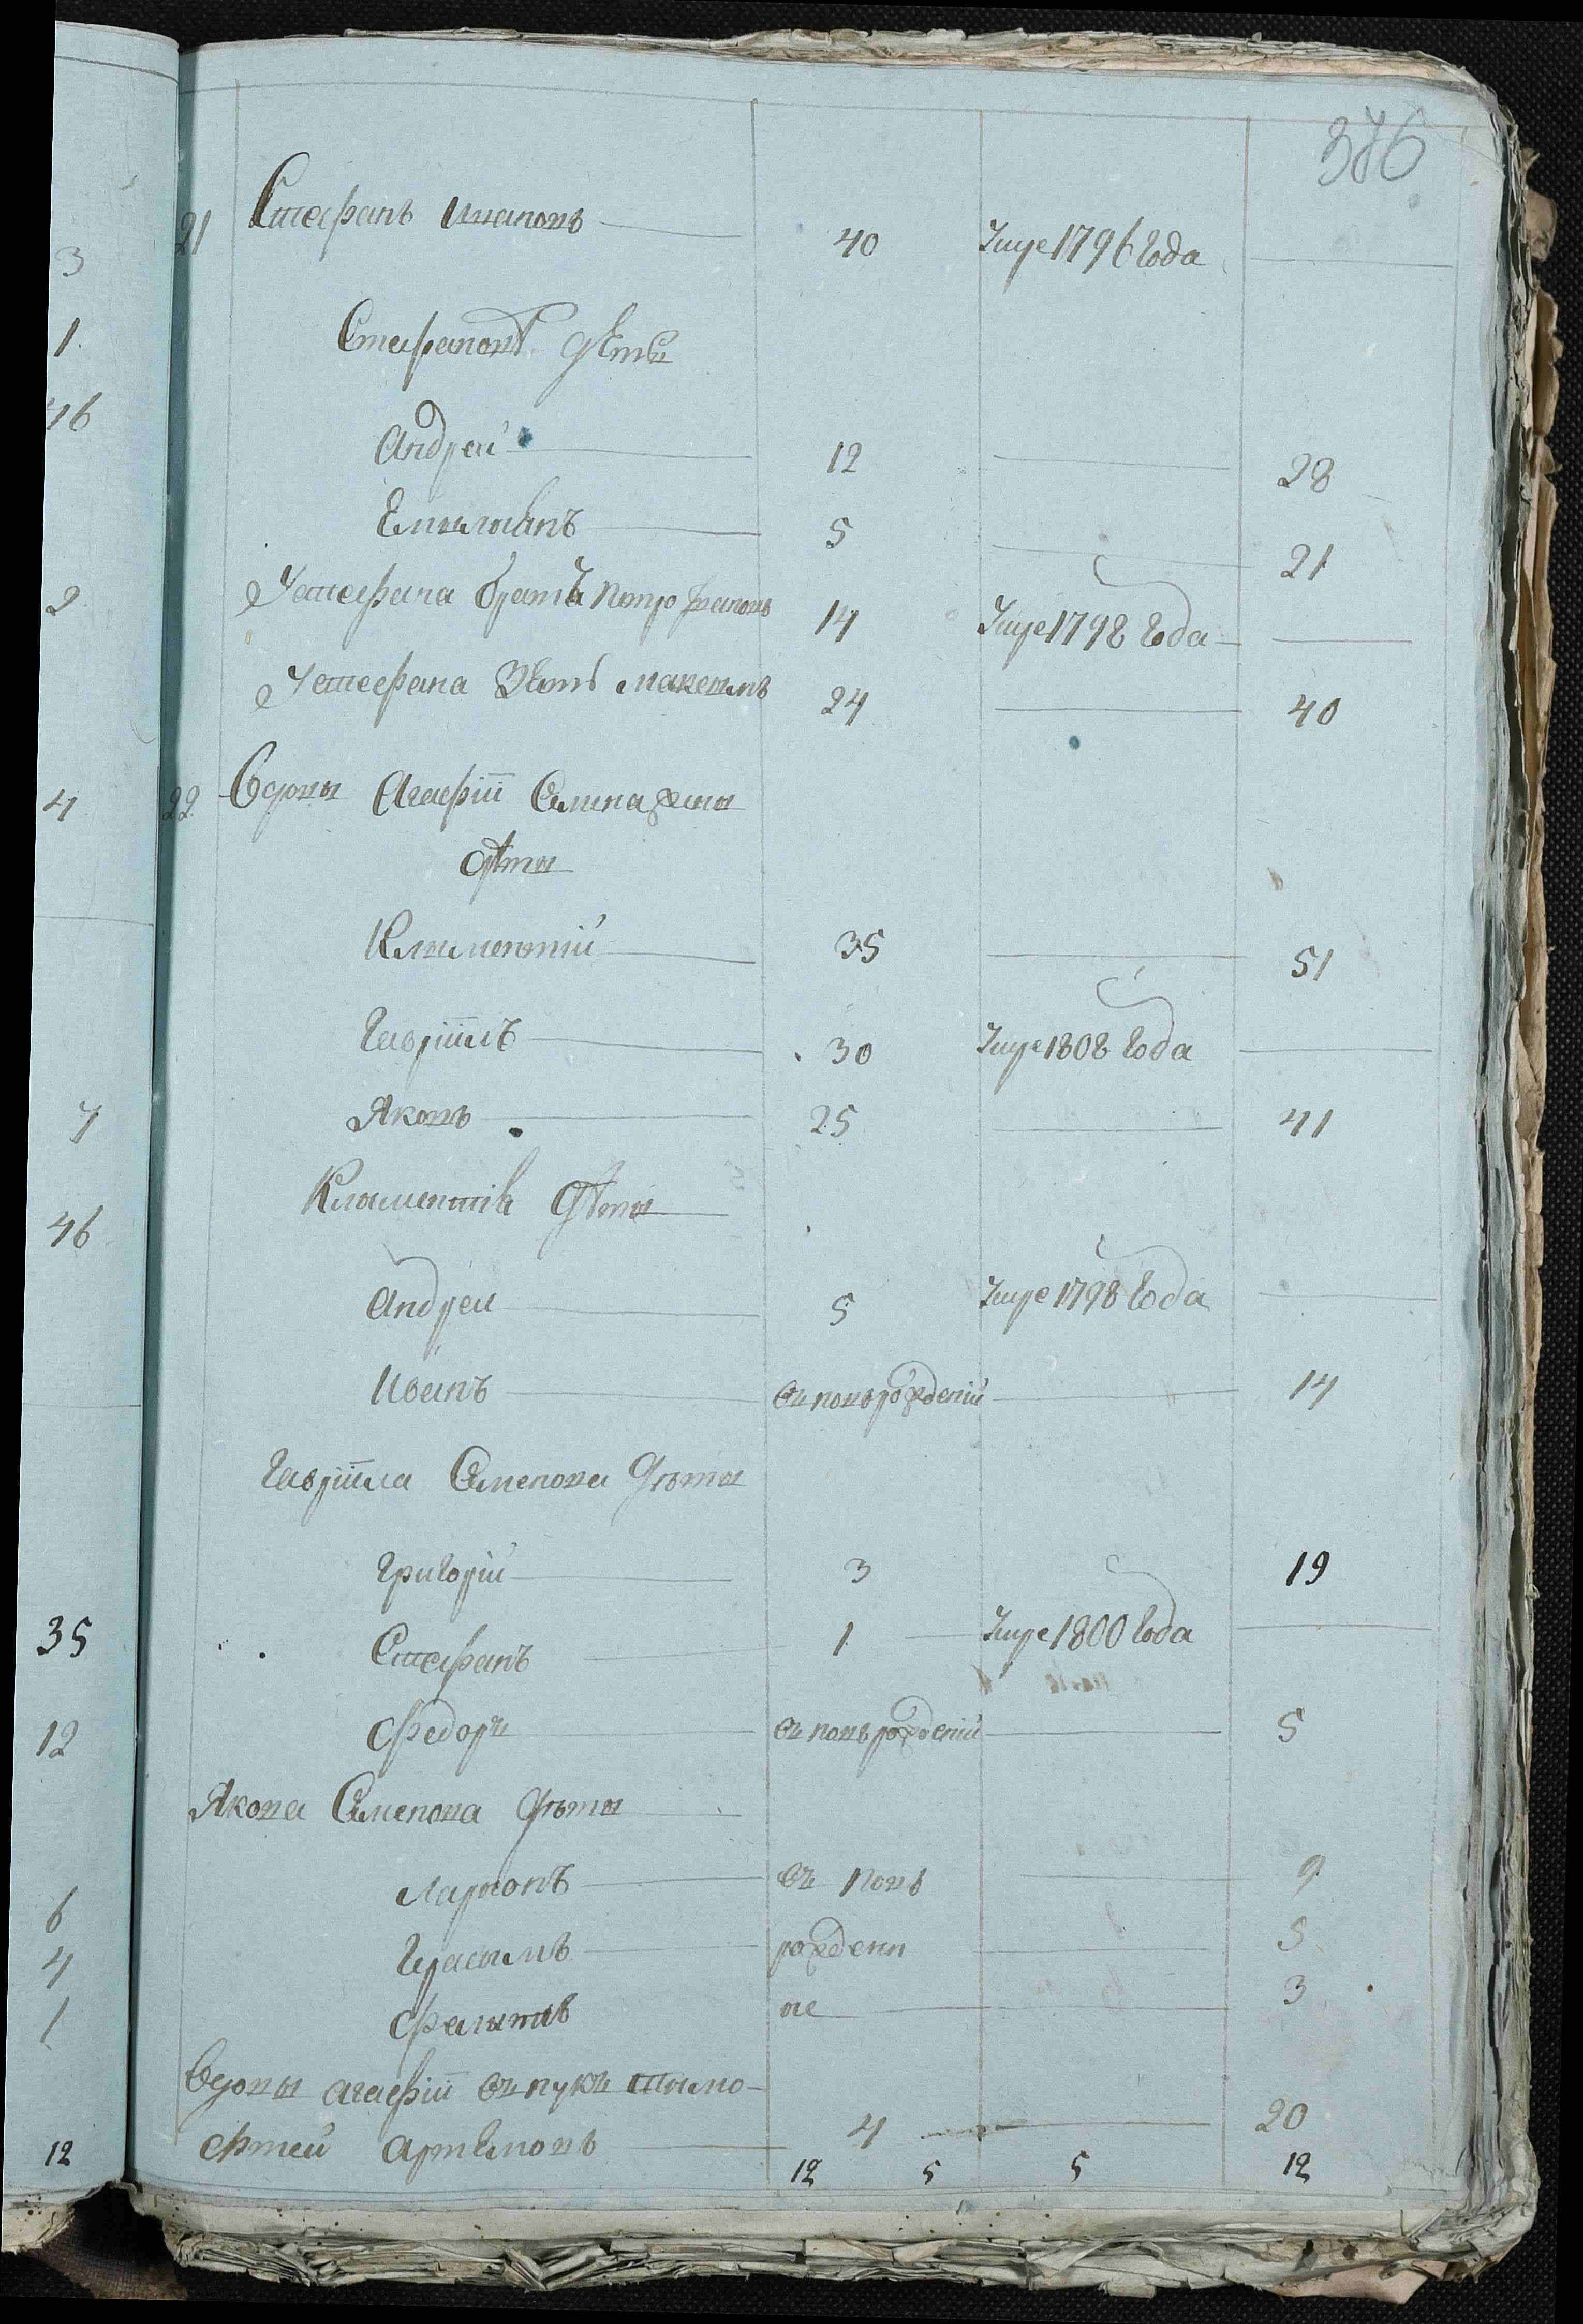 376
3
1
16
2
4
4
46
35
12
6
4
1
12
21 Стефанъ Ивановъ 40 Умре 1796 года
Стефановы дѣти
Андрей 12 28
Емельянъ 5 21
У Стефана братъ 14 Умре 1798 года
У Стефана зять Максимъ 24 40
22 Вдовы Агафіи
дѣти
Климентій 35 51
Гавріилъ 30 Умре 1808 года
Яковъ 25 41
Климентія дѣти
Андрей 5 Умре 1798 года
Иванъ въ новь рожденій 14
Гавріила Семенова дѣти
Григорій 3 19
Стефанъ 1 Умре 1800 года
Федоръ въ новь рожденій 5
Якова Семенова дѣти
Ларионъ въ новь 9
Герасимъ рожденн 5
Филипъ ые 3
Вдовы Агафіи внукъ Тимо-
фтей Артемовъ 4 20
12 5 5 12